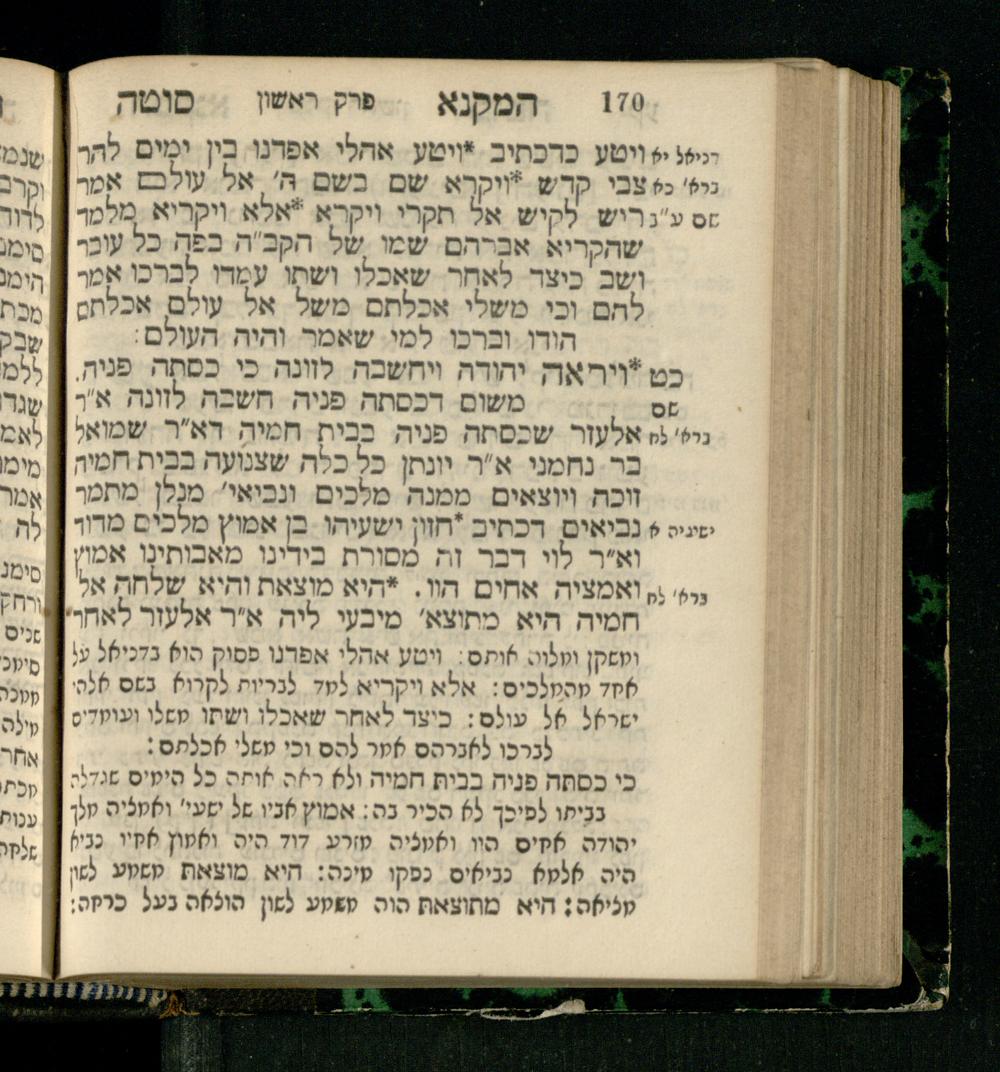 170 המקנא פרק ראשון סוטה
דניאל יא ויטע כדכתיב *ויטע אהלי אפדנו בין ימים להר
ברא' כא צבי קדש *ויקרא שם בשם ה' אל עולם אמר
שם ע"ב ריש לקיש אל תקרי ויקרא *אלא ויקריא מלמד
שהקריא אברהם שמו של הקב"ה בפה כל עובר
ושב כיצד לאחר שאכלו ושתו עמדו לברכו אמר
להם וכי משלי אכלתם משל אל עולם אכלתם
הודו וברכו למי שאמר והיה העולם:
כט *ויראה יהודה ויחשבה לזונה כי כסתה פניה.
שם משום דכסתה פניה חשבה לזונה א"ר
ברא' לח אלעזר שכסתה פניה בבית חמיה דא"ר שמואל
בר נחמני א"ר יונתן כל כלה שצנועה בבית חמיה
זוכה ויוצאים ממנה מלכים ונביאי' מנלן מתמר
ישעיה א נביאים דכתיב *חזון ישעיהו בן אמוץ מלכים מדוד
וא"ר לוי דבר זה מסורת בידינו מאבותינו אמוץ
ברא' לח ואמציה אחים הוו. *היא מוצאת והיא שלחה אל
חמיה היא מתוצא' מיבעי ליה א"ר אלעזר לאחר
ומשקן ומלוה אותם: ויטע אהלי אפדנו פסוק הוא בדניאל על
אחד מהמלכים: אלא ויקריא למד לבריות לקרוא בשם אלהי
ישראל אל עולם: כיצד לאחר שאכלו ושתו משלו ועומדים
לברכו לאברהם אמר להם וכי משלי אכלתם:
כי כסתה פניה בבית חמיה ולא ראה אותה כל הימים שגדלה
בביתו לפיכך לא הכיר בה: אמוץ אביו של ישעי' ואמציה מלך
יהודה אחים היו ואמציה מזרע דוד היה ואמוץ אחיו נביא
היה אלמא נביאים נפקו מינה: היא מוצאת משמע לשון
מציאה: היא מתוצאת הוה משמע לשון הוצאה בעל כרחה: